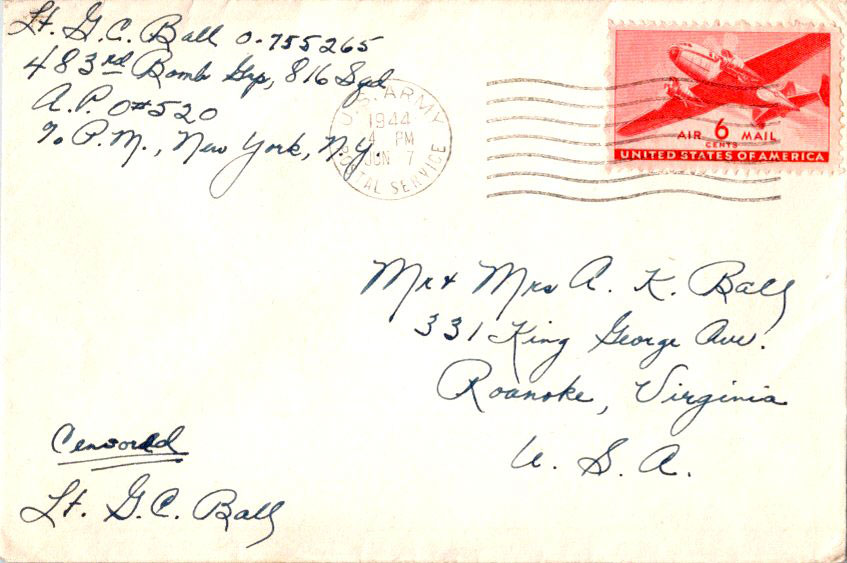 Lt. G.C. Ball 0-755265
483rd Bomb Grp, 816 Sqd
A.P.O#520
℅ P.M., New York, N.Y.
U.S. ARMY
1944
4 PM
JUN 7
POSTAL SERVICE
AIR 6 MAIL
CENTS
UNITED STATES OF AMERICA
Mr + Mrs A. K. Ball
331 King George Ave.
Roanoke, Virginia
U. S. A.
Censored
Lt. G.C. Ball